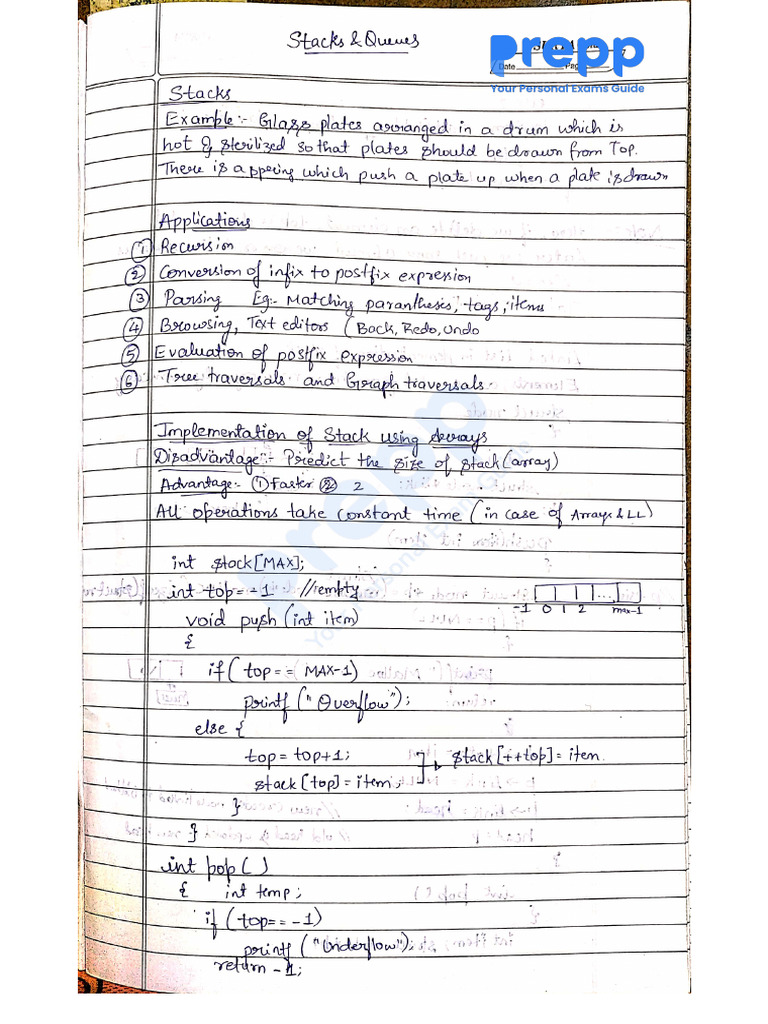 Stacks & Queues
prepp
Your Personal Exams Guide
Date
Stacks
Example:- Glass plates arranged in a drum which is
hot & sterilized so that plates should be drawn from Top.
There is a spering which push a plate up when a plate is drawn
Applications
① Recursion
② Conversion of infix to postfix expression
③ Parsing Eg:- Matching paranthesis, tags, items
④ Browsing, Text editors (Back, Redo, Undo
⑤ Evaluation of postfix expression
⑥ Tree traversals and Graph traversals.
Implementation of Stack using Arrays
Disadvantage:- Predict the size of stack (array)
Advantage:- ① Faster ② 2
All operations take constant time (in case of Arrays & LL)
int stack[MAX];
int top = -1 //empty
-1 0 1 2 ... max-1
void push (int item)
{
if( top == MAX-1)
printf ("Overflow");
else {
top = top+1;
stack[++top] = item.
stack [top] = item;
}
}
int pop( )
{ int temp;
if (top == -1)
printf ("Underflow");
return -1;
prepp
Your Personal Exams Guide